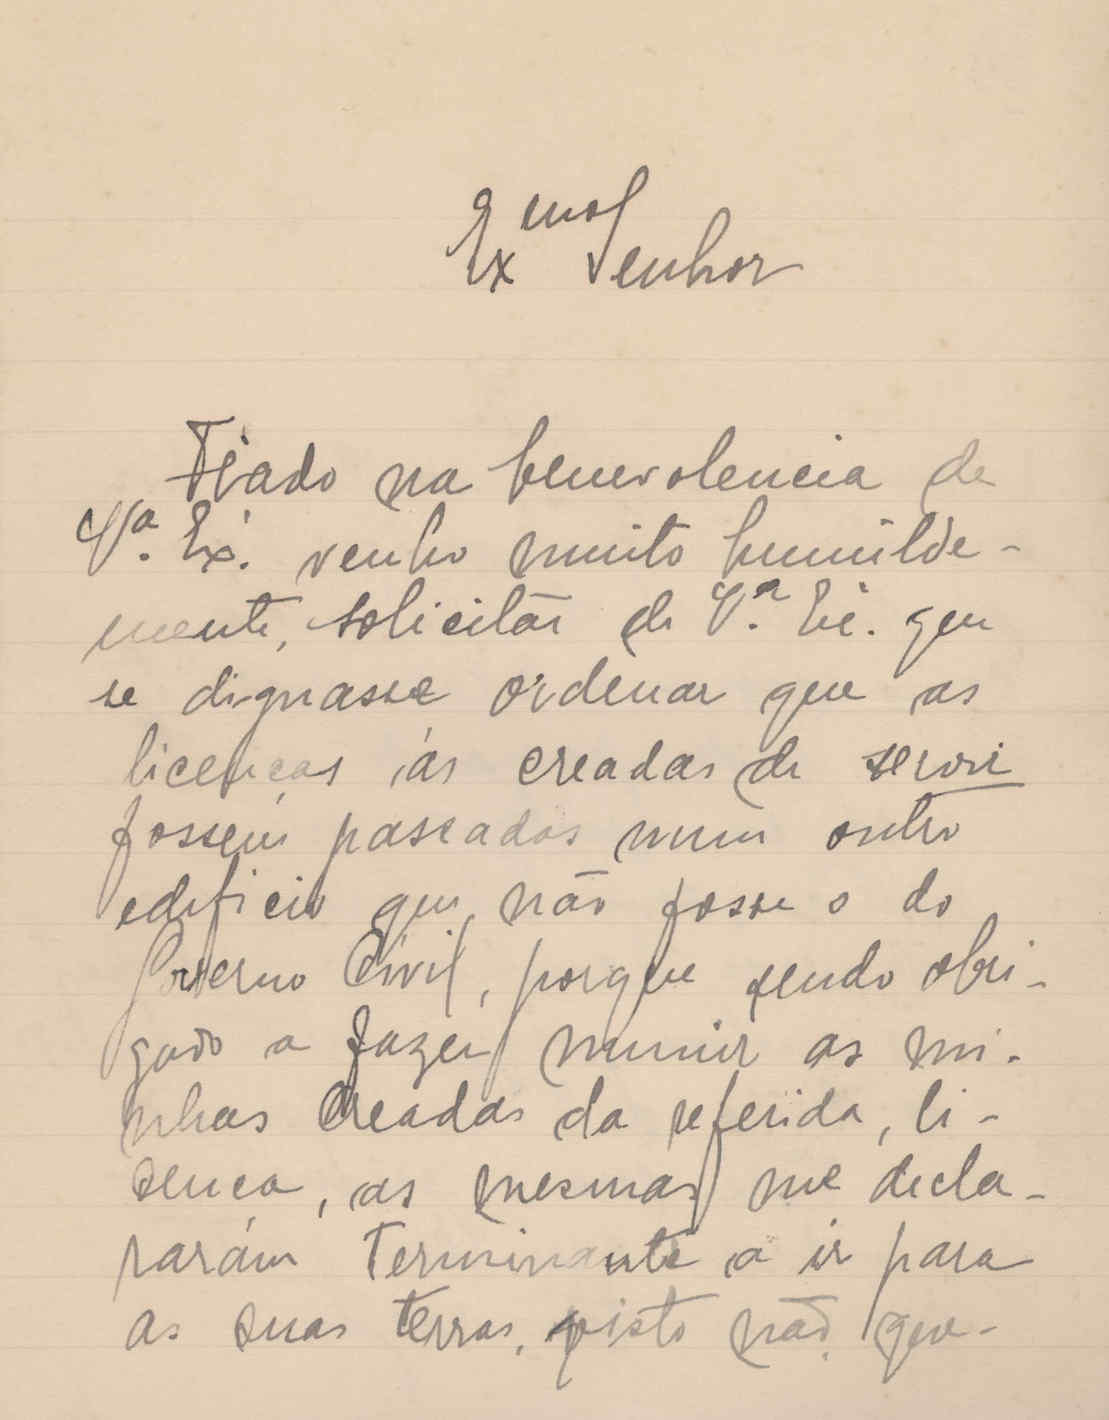 Exmo Senhor
Fiado na benevolencia de
Vª. Ex. venho muito humilde-
mente, solicitár de Vª. Ex. que
se dignasse ordenar que as
licenças ás creadas de servir
fossem passadas num outro
edificio que não fosse o do
Governo Civil, porque sendo obri-
gado a fazer munir as mi-
nhas creadas da referida, li-
senca, as mesmas me decla-
rarám terminante a ir para
as suas terras, visto não que-